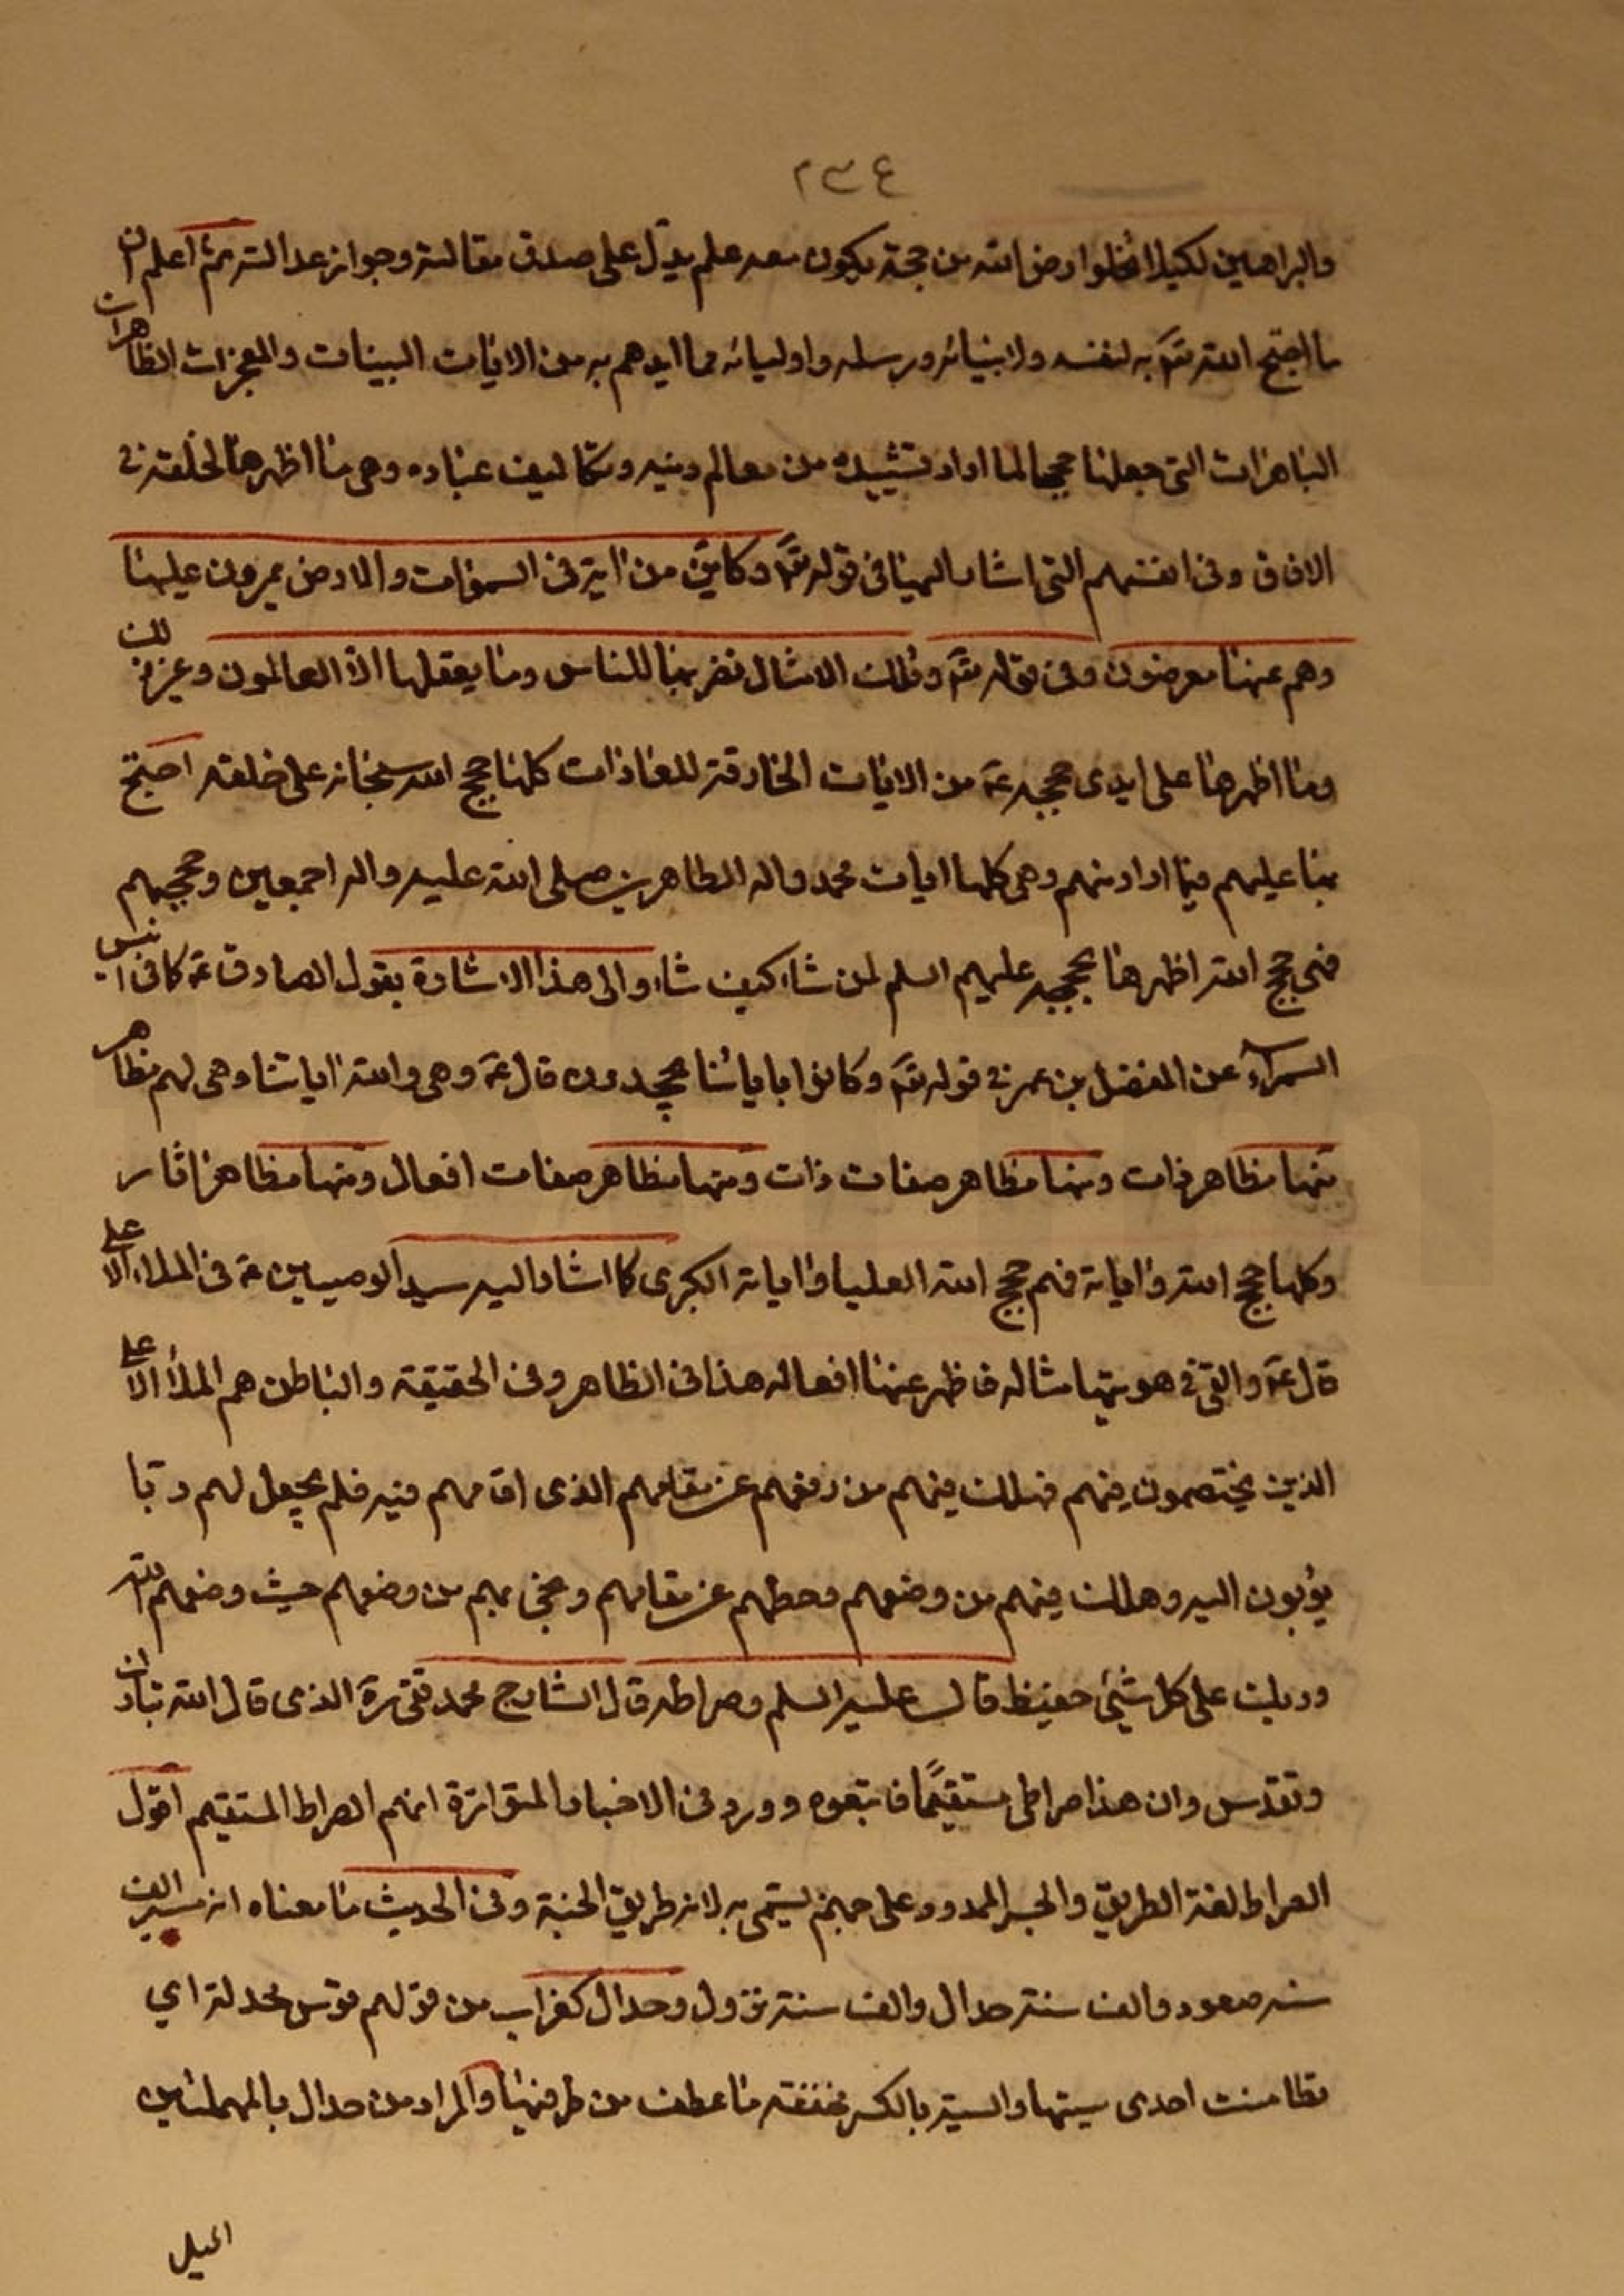 ٢٣٤
والبراهين لكيلا تخلوا ارض الله من حجة يكون معه علم يدل على صدق مقالته وجواز عدالته ثم اعلم ان
ما احتج الله تع به لنفسه ولانبيائه ورسله واوليائه مما ايدهم به من الايات البينات والمعجزات الظاهرات
الباهرات التى جعلها حججا لما اراد تشييده من معالم دينه وتكاليف عباده وهى ما اظهرها لخلقه فى
الافاق وفى انفسهم التى اشار اليها فى قوله تع وكاين من اية فى السموات والارض يمرون عليها
وهم عنها معرضون وفى قوله تع وتلك الامثال نضربها للناس وما يعقلها الا العالمون وغير ذلك
وما اظهرها على ايدى حججه ع من الايات الخارقة للعادات كلها حجج الله سبحانه على خلقه احتج
بها عليهم فيما اراد منهم وهى كلها ايات محمد واله الطاهرين صلى الله عليه واله اجمعين وحججهم
فهى حجج الله اظهرها بحججه عليهم السلم لمن شاء كيف شاء والى هذا الاشارة بقول الصادق ع كما فى انيس
السمراء عن المفضل بن عمر فى قوله تع وكانوا باياتنا يجحدون قال ع وهى والله اياتنا وهى لهم مظاهر
منها مظاهر ذات ومنها مظاهر صفات ذات ومنها مظاهر صفات افعال ومنها مظاهر اثار
وكلها حجج الله واياته فهم حجج الله العليا واياته الكبرى كما اشار اليه سيد الوصيين ع فى الملاء الاعلى
قال ع والقى فى هويتها مثاله فاظهر عنها افعاله هذا فى الظاهر وفى الحقيقة والباطن هم الملأ الاعلى
الذين يختصمون فيهم فهلك فيهم من رفعهم عن مقامهم الذى اقامهم فيه فلم يجعل لهم ربا
يؤبون اليه وهلك فيهم من وضعهم وحطهم عن مقامهم ونجى بهم من وضعهم حيث وضعهم الله
وربك على كل شيئ حفيظ قال عليه السلم وصراطه قال الشارح محمد تقى ره الذى قال الله تبارك
وتقدس وان هذا صراطى مستقيمًا فاتبعوه وورد فى الاخبار المتواترة انهم الصراط المستقيم اقول
الصراط لغة الطريق والجسر الممدود على جهنم يسمى به لانه طريق الجنة وفى الحديث ما معناه انه مسير الف
سنه صعود والف سنة حدال والف سنة نزول وحدال كغراب من قولهم قوس محدلة اي
تطامنت احدى سيتها والسية بالكسر مخففة ما عطف من طرفيها والمراد من حدال بالمهملتين
الميل